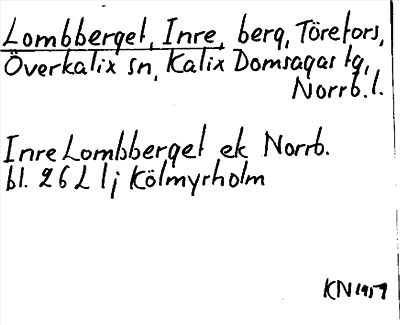 Lombberget, Inre, berg, Törefors,
Överkalix sn, Kalix Domsagas tg,
Norrb. l.
Inre Lombberget ek Norrb.
bl. 26 L 1j Kölmyrholm
KN 1957